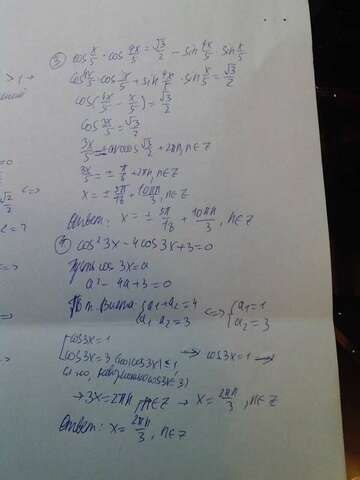 ③ cos x/5 · cos 4x/5 = √3/2 − sin 4x/5 · sin x/5
cos 4x/5 · cos x/5 + sin 4x/5 · sin x/5 = √3/2
cos(4x/5 − x/5) = √3/2
cos 3x/5 = √3/2
3x/5 = ± arccos √3/2 + 2πn, n∈Z
3x/5 = ± π/6 + 2πn, n∈Z
x = ± 5π/18 + 10πn/3, n∈Z
Ответ: x = ± 5π/18 + 10πn/3, n∈Z
④ cos² 3x − 4 cos 3x + 3 = 0
Пусть cos 3x = a
a² − 4a + 3 = 0
По т. Виета: { a₁ + a₂ = 4 <=> { a₁ = 1
a₁ · a₂ = 3 a₂ = 3
[ cos 3x = 1
cos 3x = 3 → cos 3x = 1 →
→ 3x = 2πn, n∈Z → x = 2πn/3, n∈Z
Ответ: x = 2πn/3, n∈Z